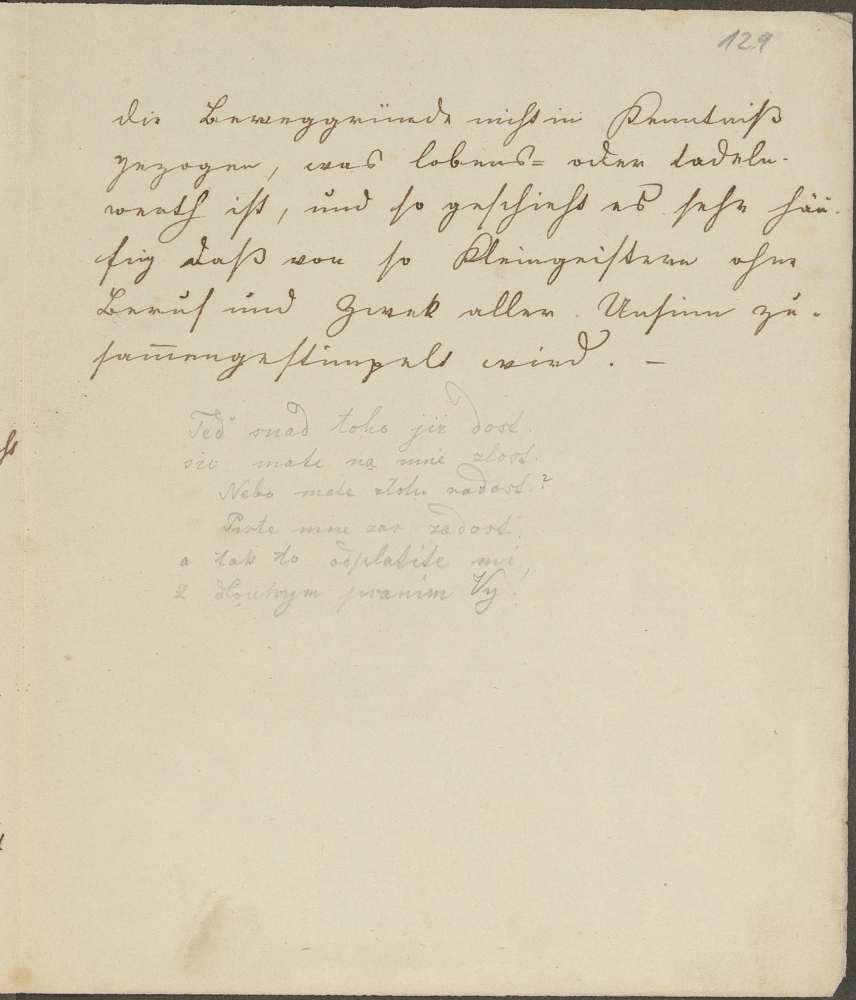 129
die Beweggründe nicht in Kenntniß
gezogen, was lobens= oder tadeln-
werth ist, und so geschieht es sehr häu-
fig daß von so Kleingeistern ohne
Beruf und Zwek aller Unsinn zu-
sam̄engestimpelt wird. —
Teď snad toho již dost.
sic mate na mne zlost.
Nebo mate radost?
Piste mne zas žadost
a tak to odplatite mi,
Z dlouhym psanim Vy!